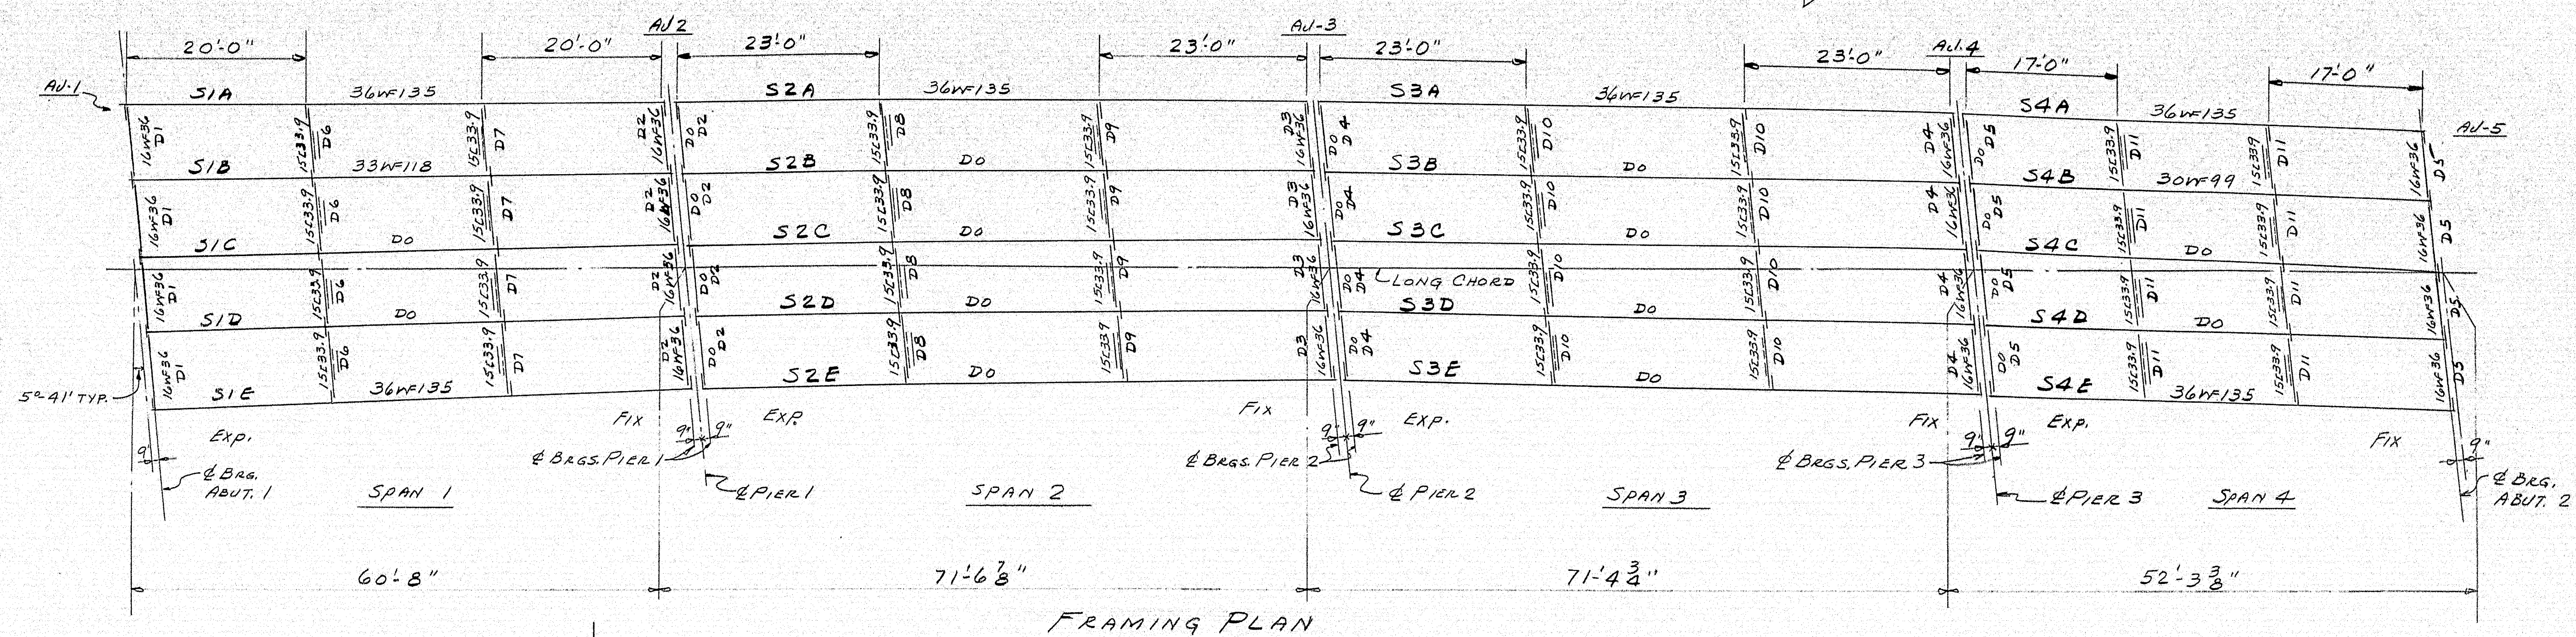 AJ-1
AJ2
AJ-3
AJ.4
AJ-5
20'-0"
20'-0"
23'-0"
23'-0"
23'-0"
23'-0"
17'-0"
17'-0"
S1A 36WF135
S2A 36WF135
S3A 36WF135
S4A 36WF135
16WF36 D1
15[33.9 D6
15[33.9 D7
D2 16WF36
DO D2
15[33.9 D8
15[33.9 D9
D3 16WF36
DO D4
15[33.9 D10
15[33.9 D10
D4 16WF36
DO D5
15[33.9 D11
15[33.9 D11
16WF36 D5
S1B 33WF118
S2B DO
S3B DO
S4B 30WF99
16WF36 D1
15[33.9 D6
15[33.9 D7
D2 16WF36
DO D2
15[33.9 D8
15[33.9 D9
D3 16WF36
DO D4
15[33.9 D10
15[33.9 D10
D4 16WF36
DO D5
15[33.9 D11
15[33.9 D11
16WF36 D5
S1C DO
S2C DO
S3C DO
S4C DO
LONG CHORD
16WF36 D1
15[33.9 D6
15[33.9 D7
D2 16WF36
DO D2
15[33.9 D8
15[33.9 D9
D3 16WF36
DO D4
15[33.9 D10
15[33.9 D10
D4 16WF36
DO D5
15[33.9 D11
15[33.9 D11
16WF36 D5
S1D DO
S2D DO
S3D DO
S4D DO
16WF36 D1
15[33.9 D6
15[33.9 D7
D2 16WF36
DO D2
15[33.9 D8
15[33.9 D9
D3 16WF36
DO D4
15[33.9 D10
15[33.9 D10
D4 16WF36
DO D5
15[33.9 D11
15[33.9 D11
16WF36 D5
S1E 36WF135
S2E DO
S3E DO
S4E 36WF135
5°-41' TYP.
9"
EXP.
FIX
9" 9"
EXP.
FIX
9" 9"
EXP.
FIX
9" 9"
EXP.
FIX
9"
℄ BRG.
ABUT. 1
℄ BRGS. PIER 1
℄ PIER 1
℄ BRGS. PIER 2
℄ PIER 2
℄ BRGS. PIER 3
℄ PIER 3
℄ BRG.
ABUT. 2
SPAN 1
SPAN 2
SPAN 3
SPAN 4
60'-8"
71'-6 7/8"
71'-4 3/4"
52'-3 3/8"
FRAMING PLAN